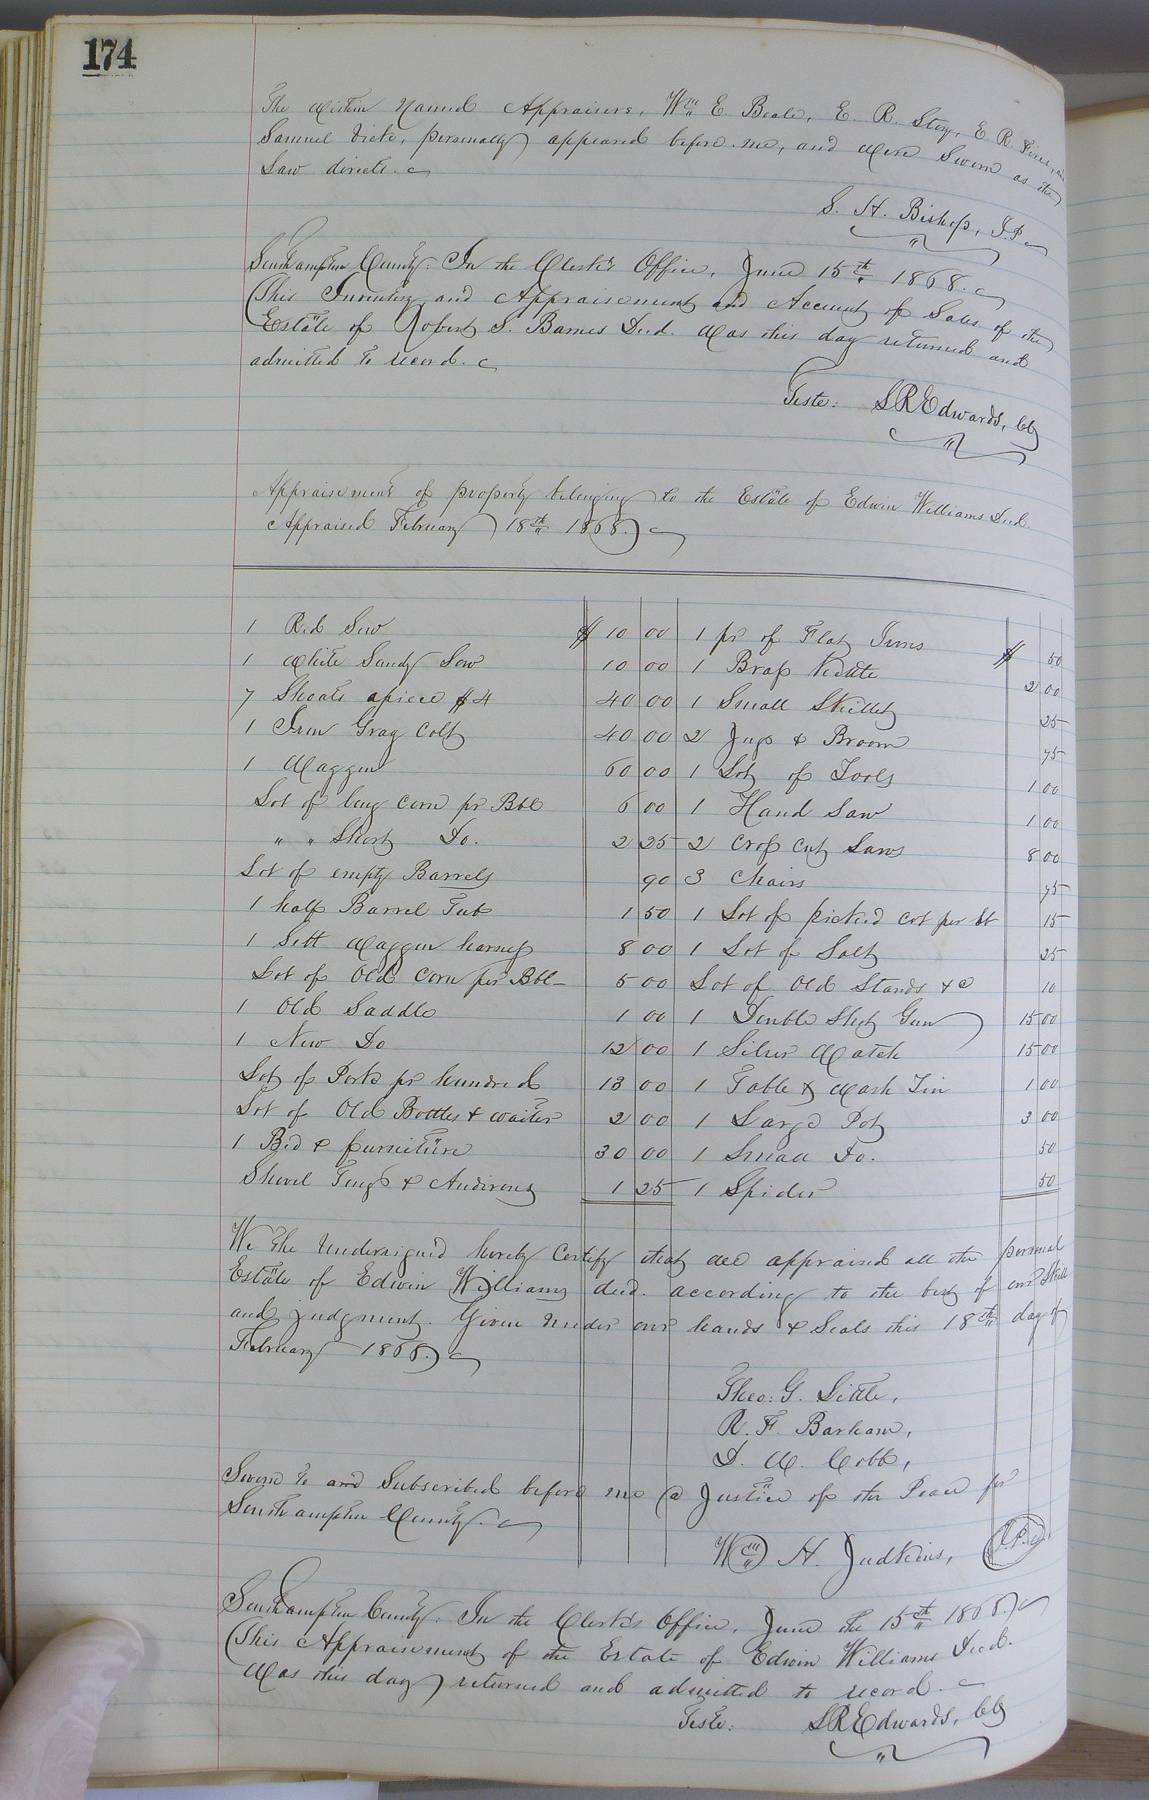 174
The within Named Appraisers, Wm E. Beale, E. R. Story, E R and
Samuel personally appeared before me, and were Sworn as the
Law directs.
S. H. Bishop, J.P.
Southampton County: In the Clerk's Office, June 15th 1868.
This Inventory and Appraisement and Account of Sales of the
Estate of Robert S. Barnes Decd. Was this day returned and
admitted to record.
Teste: S R Edwards, Clk
Appraisement of property belonging to the Estate of Edwin Williams Decd.
Appraised February 18th 1868.
1 Red Sow $ 10 00
1 White Sandy Sow 10 00
7 Shoats apiece $4 40 00
1 Iron Gray Colt 40 00
1 Waggon 60 00
Lot of long corn pr Bbl 6 00
" " Short Do. 2 25
Lot of empty Barrels 90
1 half Barrel Tub 1 50
1 Sett Waggon harness 8 00
Lot of Old Corn per Bbl 5 00
1 Old Saddle 1 00
1 New Do 12 00
Lot of Pork pr hundred 13 00
Lot of Old Bottles & waiter 2 00
1 Bed & furniture 30 00
Shovel Tongs & Andirons 1 25
1 pr of Flat Irons $ 50
1 Brass Kettle 2 00
1 Small Skillet 25
2 Jugs & Broom 75
1 Lot of Tools 1 00
1 Hand Saw 1 00
2 Cross cut Saws 8 00
3 Chairs 75
1 Lot of picked cot per lb 15
1 Lot of Salt 25
Lot of Old Stands &c 10
1 Double Shot Gun 15 00
1 Silver Watch 15 00
1 Table & Wash Tin 1 00
1 Large Pot 3 00
1 Small Do. 50
1 Spider 50
We the Undersigned hereby Certify that we appraised all the personal
Estate of Edwin Williams decd. according to the best of our Skill
and judgment. Given under our hands & Seals this 18th day of
February 1868.
Theo: G. Little,
R. F. Barham,
D. W. Cobb,
Sworn to and Subscribed before me a Justice of the Peace for
Southampton County.
Wm H. Judkins, J.P.
Southampton County: In the Clerk's Office, June the 15th 1868.
This Appraisement of the Estate of Edwin Williams Decd.
Was this day returned and admitted to record.
Teste: S R Edwards, Clk